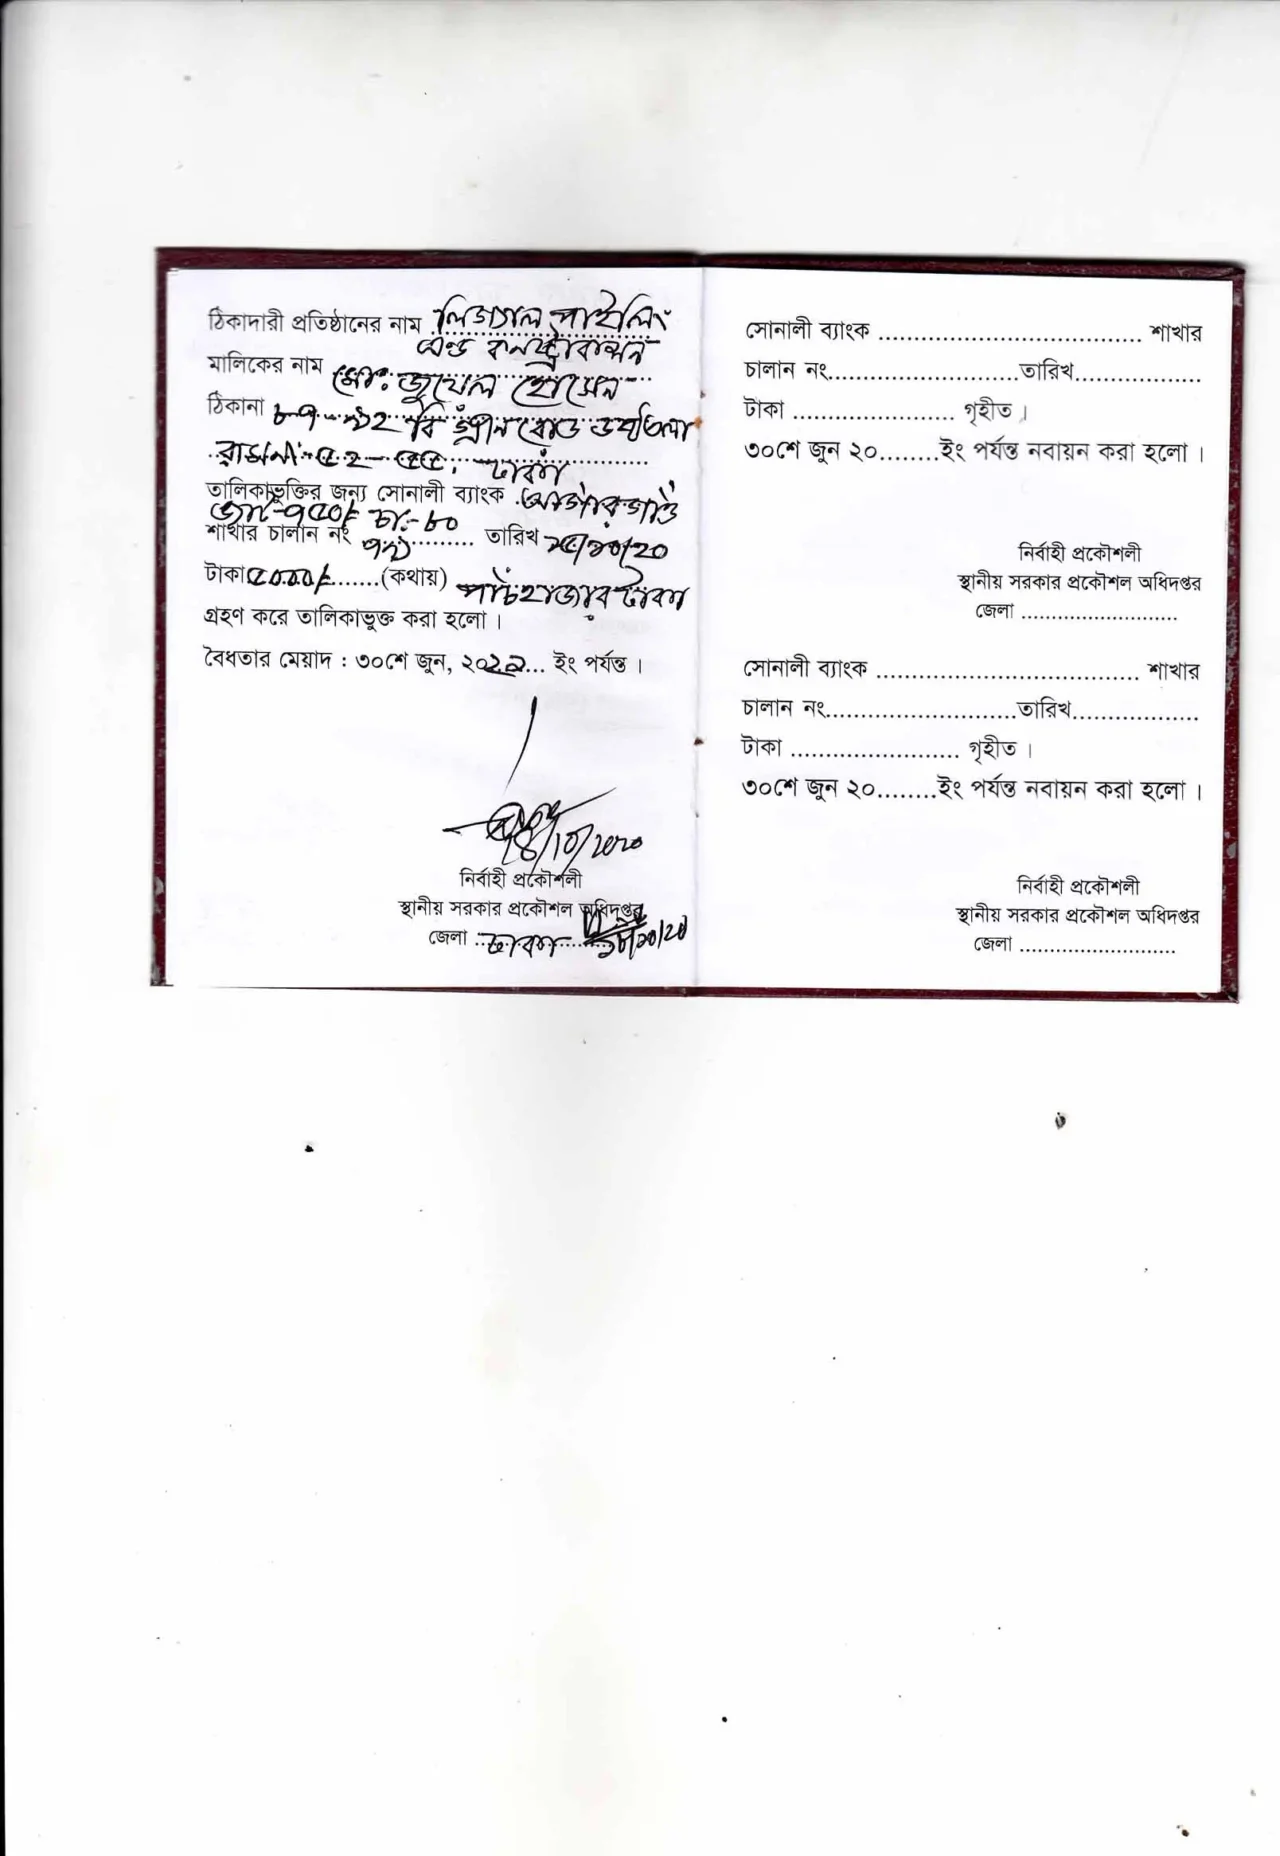 ঠিকাদারী প্রতিষ্ঠানের নাম লিগ্যাল পাইলিং
এন্ড কনস্ট্রাকশন
মালিকের নাম মোঃ জুয়েল হোসেন
ঠিকানা রোড
ঢাকা
তালিকাভুক্তির জন্য সোনালী ব্যাংক আগারগাঁও
শাখার চালান নং তারিখ ১৫/১০/২০
টাকা ৫০০০/= ......(কথায়) পাঁচ হাজার টাকা
গ্রহণ করে তালিকাভুক্ত করা হলো।
বৈধতার মেয়াদ : ৩০শে জুন, ২০২১... ইং পর্যন্ত।
নির্বাহী প্রকৌশলী
স্থানীয় সরকার প্রকৌশল অধিদপ্তর
জেলা ..ঢাকা
সোনালী ব্যাংক .................................... শাখার
চালান নং...........................তারিখ..................
টাকা ....................... গৃহীত।
৩০শে জুন ২০........ইং পর্যন্ত নবায়ন করা হলো।
নির্বাহী প্রকৌশলী
স্থানীয় সরকার প্রকৌশল অধিদপ্তর
জেলা ..........................
সোনালী ব্যাংক .................................... শাখার
চালান নং...........................তারিখ..................
টাকা ....................... গৃহীত।
৩০শে জুন ২০........ইং পর্যন্ত নবায়ন করা হলো।
নির্বাহী প্রকৌশলী
স্থানীয় সরকার প্রকৌশল অধিদপ্তর
জেলা ..........................